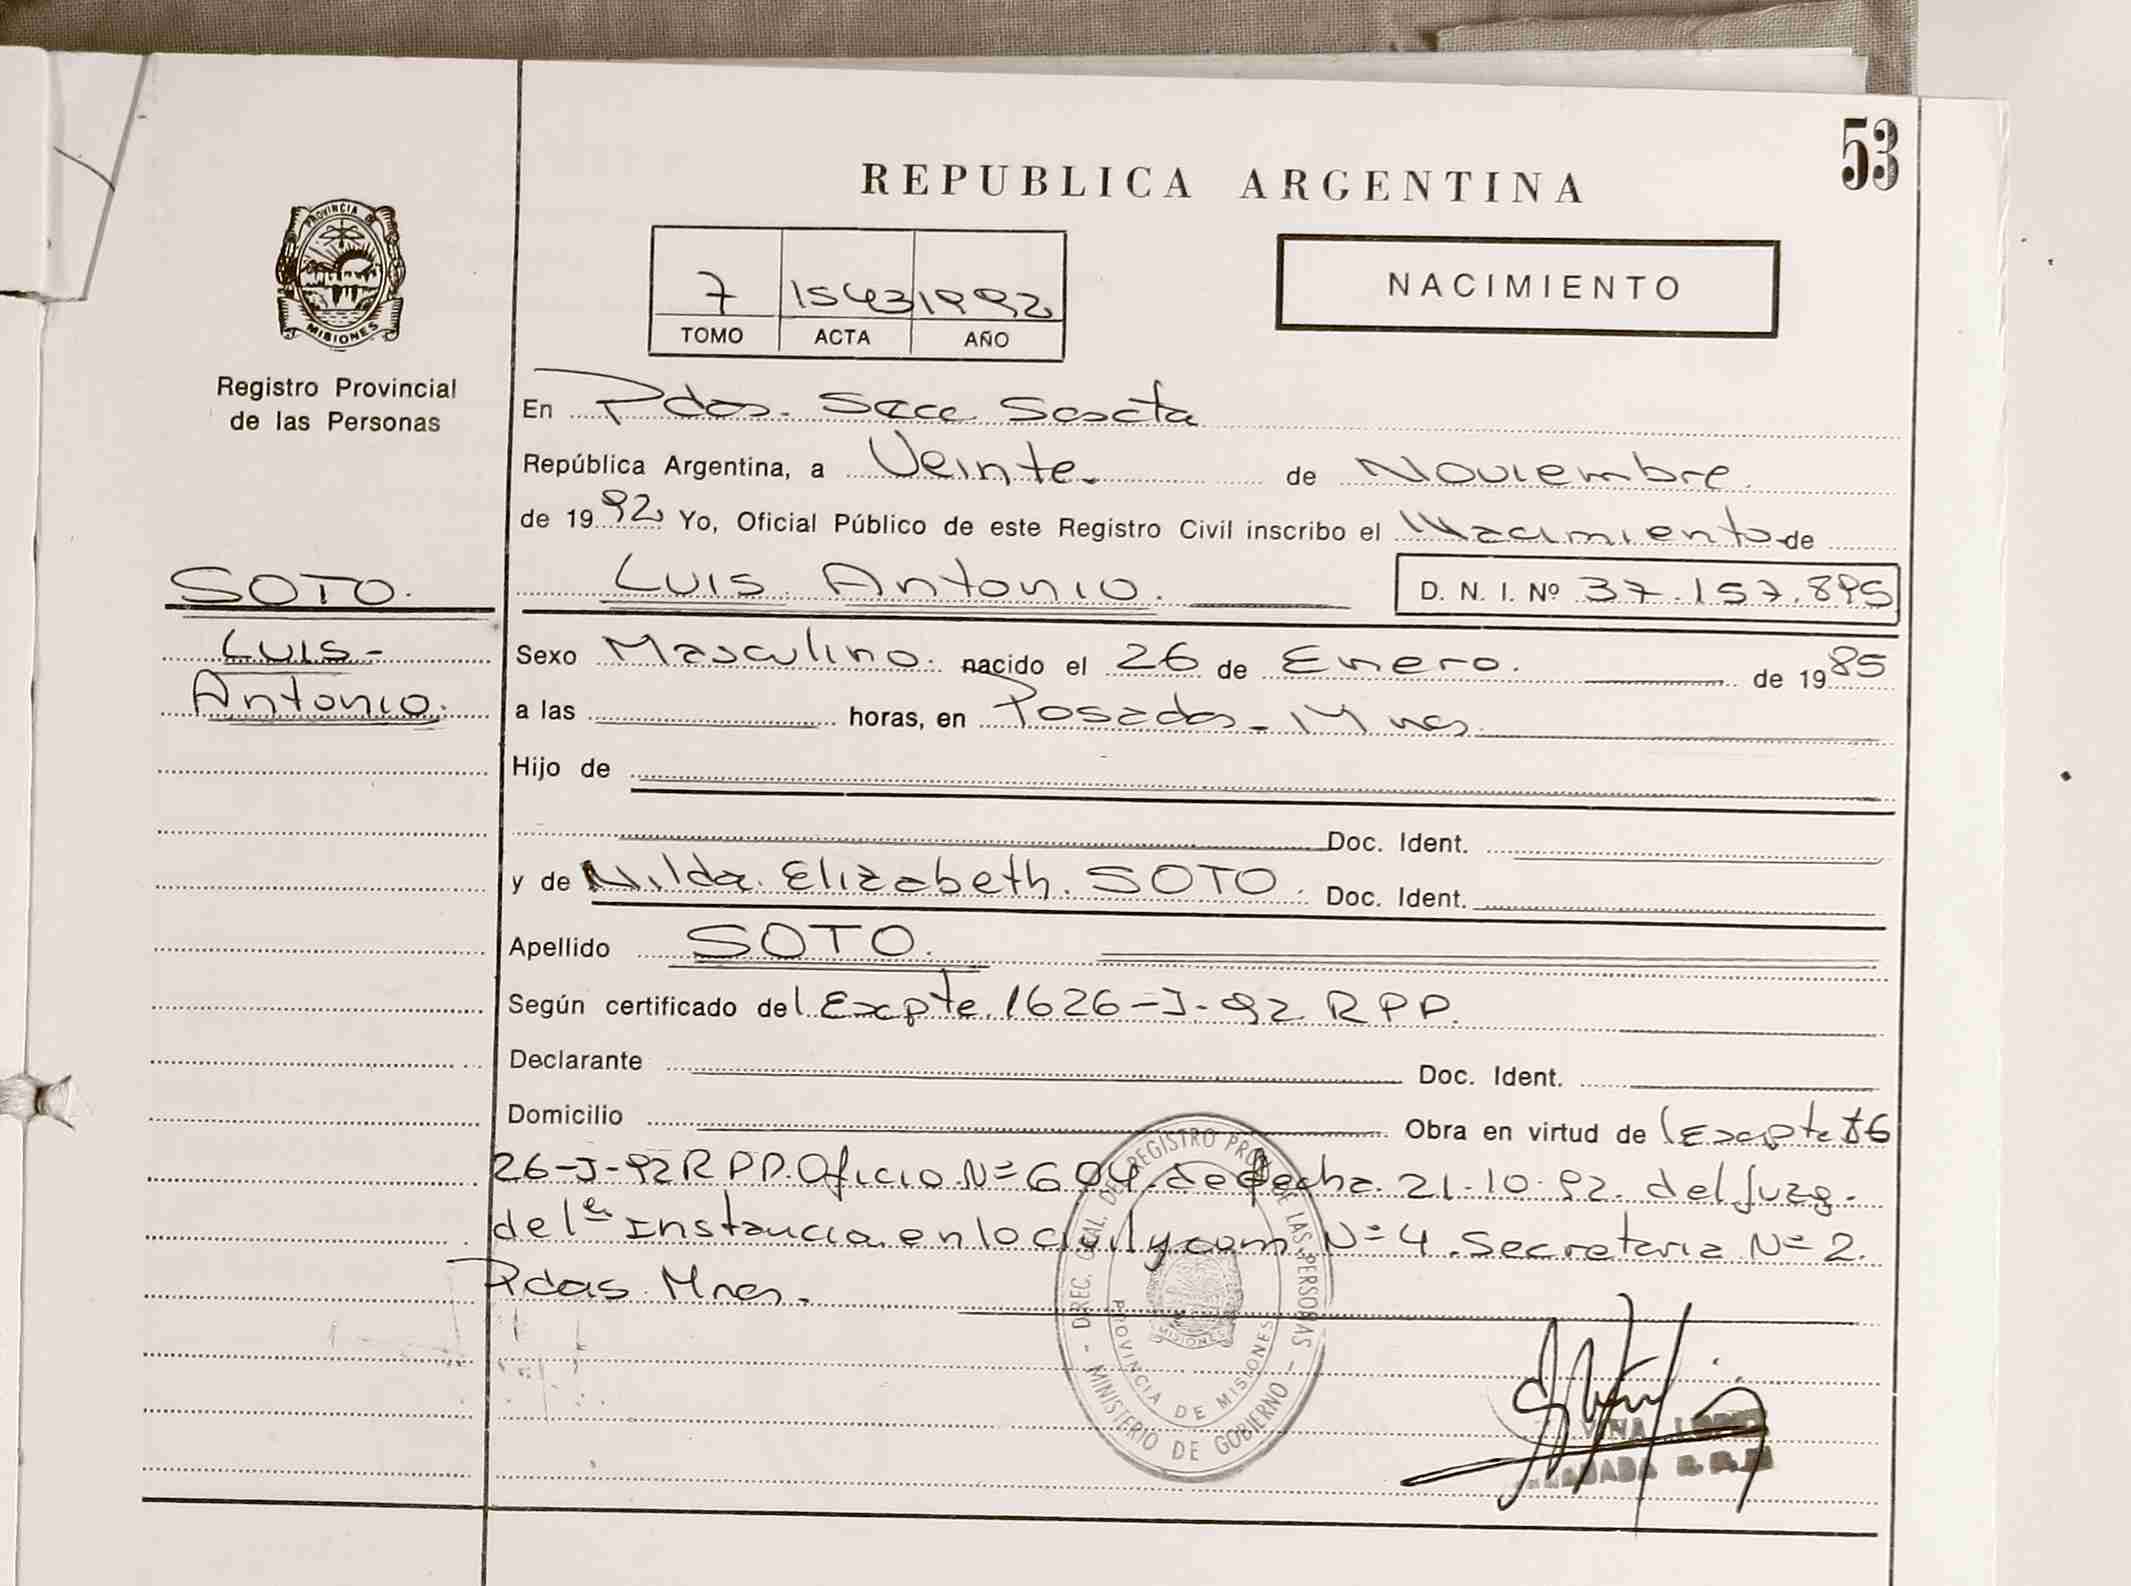 53
REPUBLICA ARGENTINA
PROVINCIA DE
MISIONES
7 1543 1992
TOMO ACTA AÑO
NACIMIENTO
Registro Provincial
de las Personas
En Pdas. Secc Sexta
República Argentina, a Veinte. de Noviembre.
de 1992 Yo, Oficial Público de este Registro Civil inscribo el Nacimiento de
SOTO.
Luis Antonio. D. N. I. Nº 37.157.895
Luis-
Sexo Masculino. nacido el 26 de Enero. de 1985
Antonio.
a las horas, en Posadas - Mnes.
Hijo de
Doc. Ident.
y de Nilda. Elizabeth. SOTO. Doc. Ident.
Apellido SOTO.
Según certificado del Expte. 1626-J-92 RPP.
Declarante Doc. Ident.
Domicilio Obra en virtud de l Expte 16
26-J-92 RPP. Oficio Nº 604 de fecha 21-10-92. del Juzg.
de 1ª Instancia en lo civil y com Nº 4. Secretaria Nº 2.
Pdas. Mnes.
- DIREC. GRAL. DE REGISTRO PROV. DE LAS PERSONAS -
MINISTERIO DE GOBIERNO
PROVINCIA DE MISIONES
MISIONES